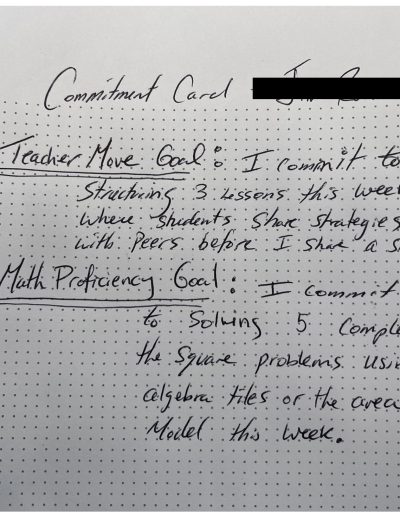 Commitment Card -
Teacher Move Goal: I commit to
Structuring 3 Lessons this week
where students share strategies
with Peers before I share a s
Math Proficiency Goal: I commit
to Solving 5 Comple
the Square problems usi
algebra tiles or the area
Model this week.